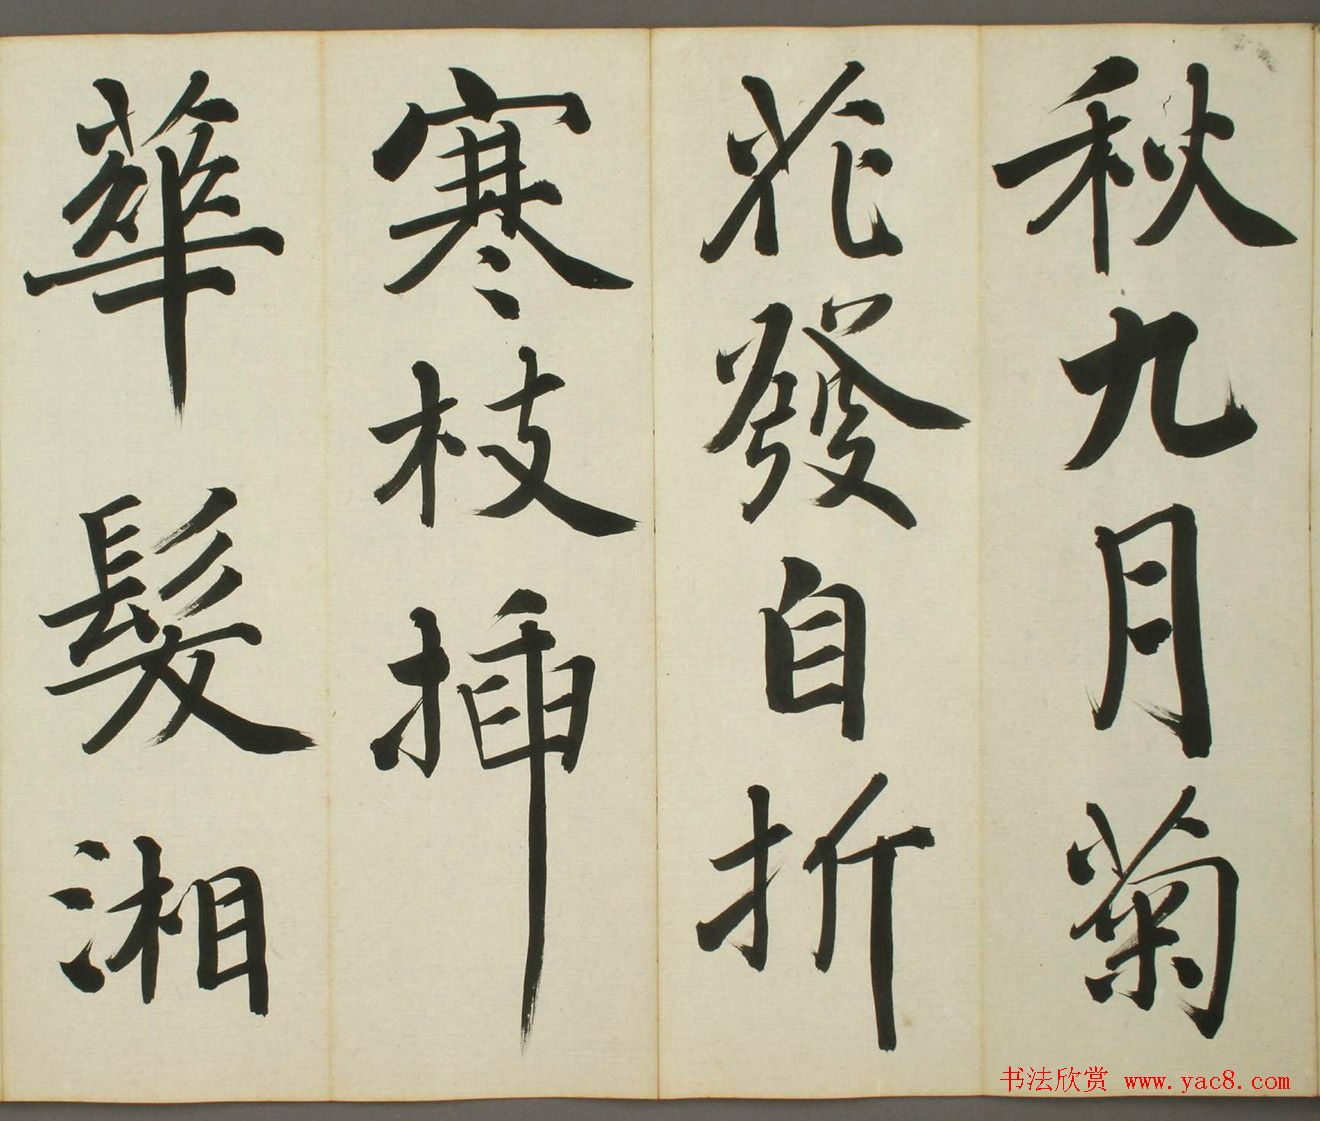 秋九月菊
花發自折
寒枝挿
華髮湘
书法欣赏 www.yac8.com